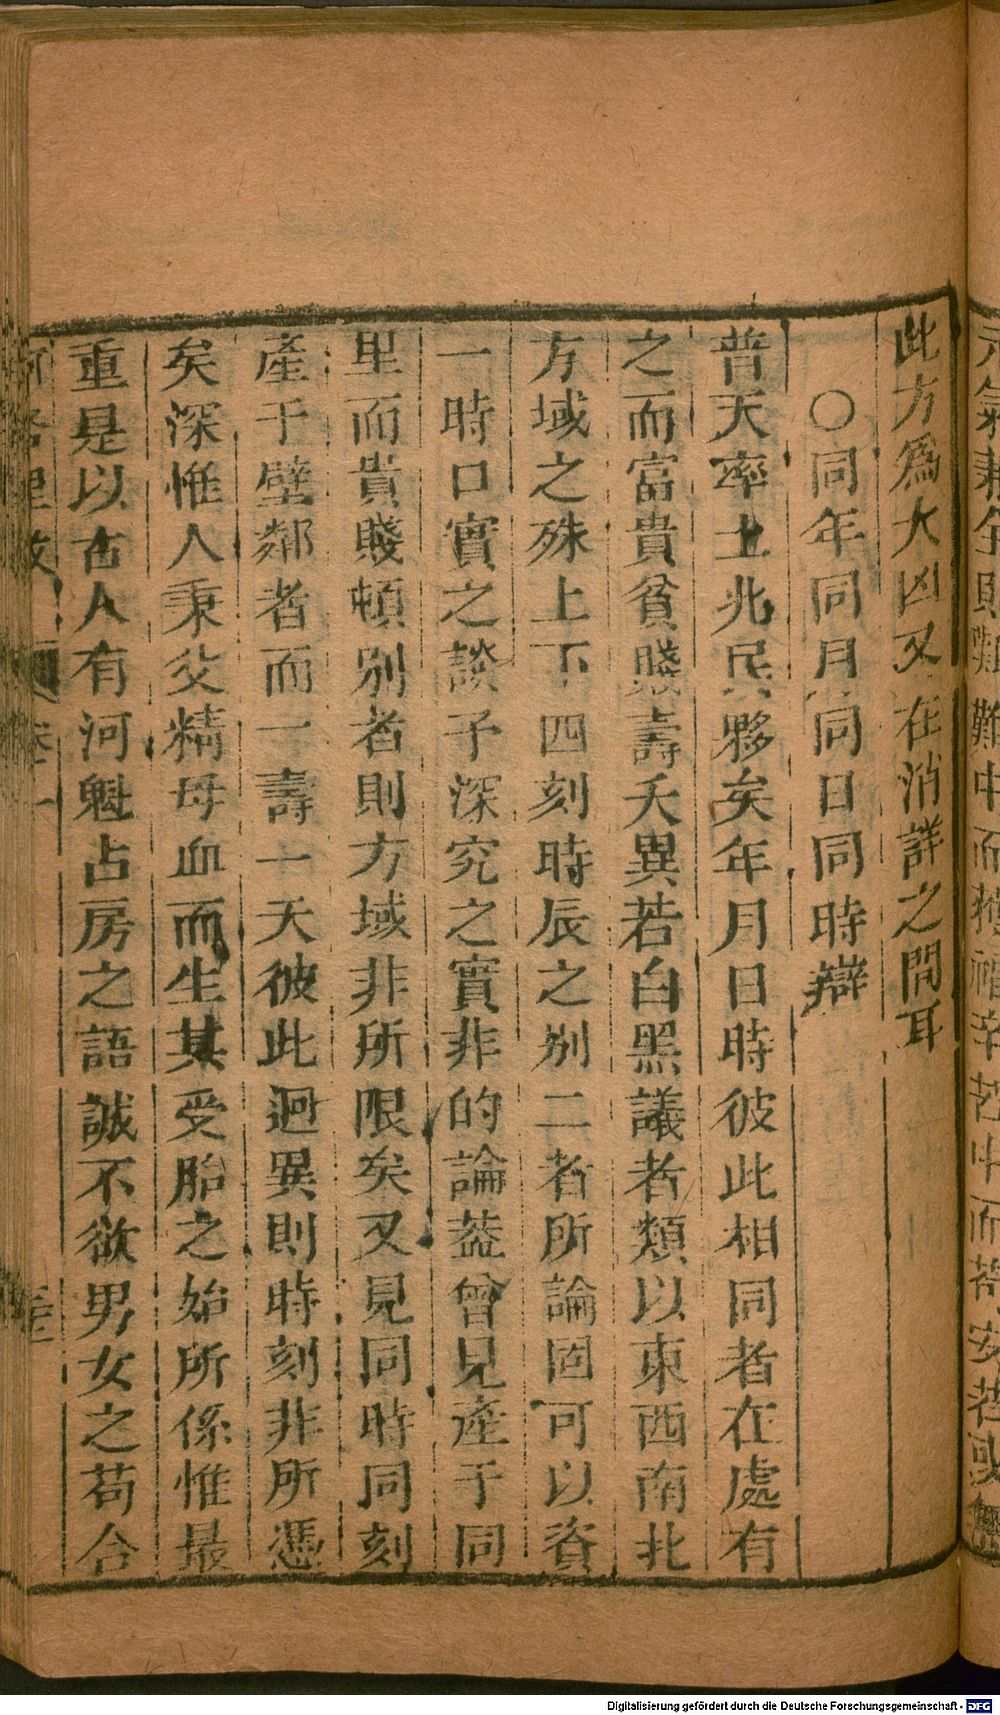 此方為大凶又在消詳之間耳
○同年同月同日同時辯
普天率土兆民夥矣年月日時彼此相同者在處有
之而富貴貧賤壽夭異若白黑議者類以東西南北
方域之殊上下四刻時辰之別二者所論固可以資
一時口實之談予深究之實非的論葢曾見產于同
里而貴賤頓別者則方域非所限矣又見同時同刻
產于壁鄰者而一壽一夭彼此迥異則時刻非所憑
矣深惟人秉父精母血而生其受胎之始所係惟最
重是以古人有河魁占房之語誠不欲男女之苟合
Digitalisierung gefördert durch die Deutsche Forschungsgemeinschaft - DFG